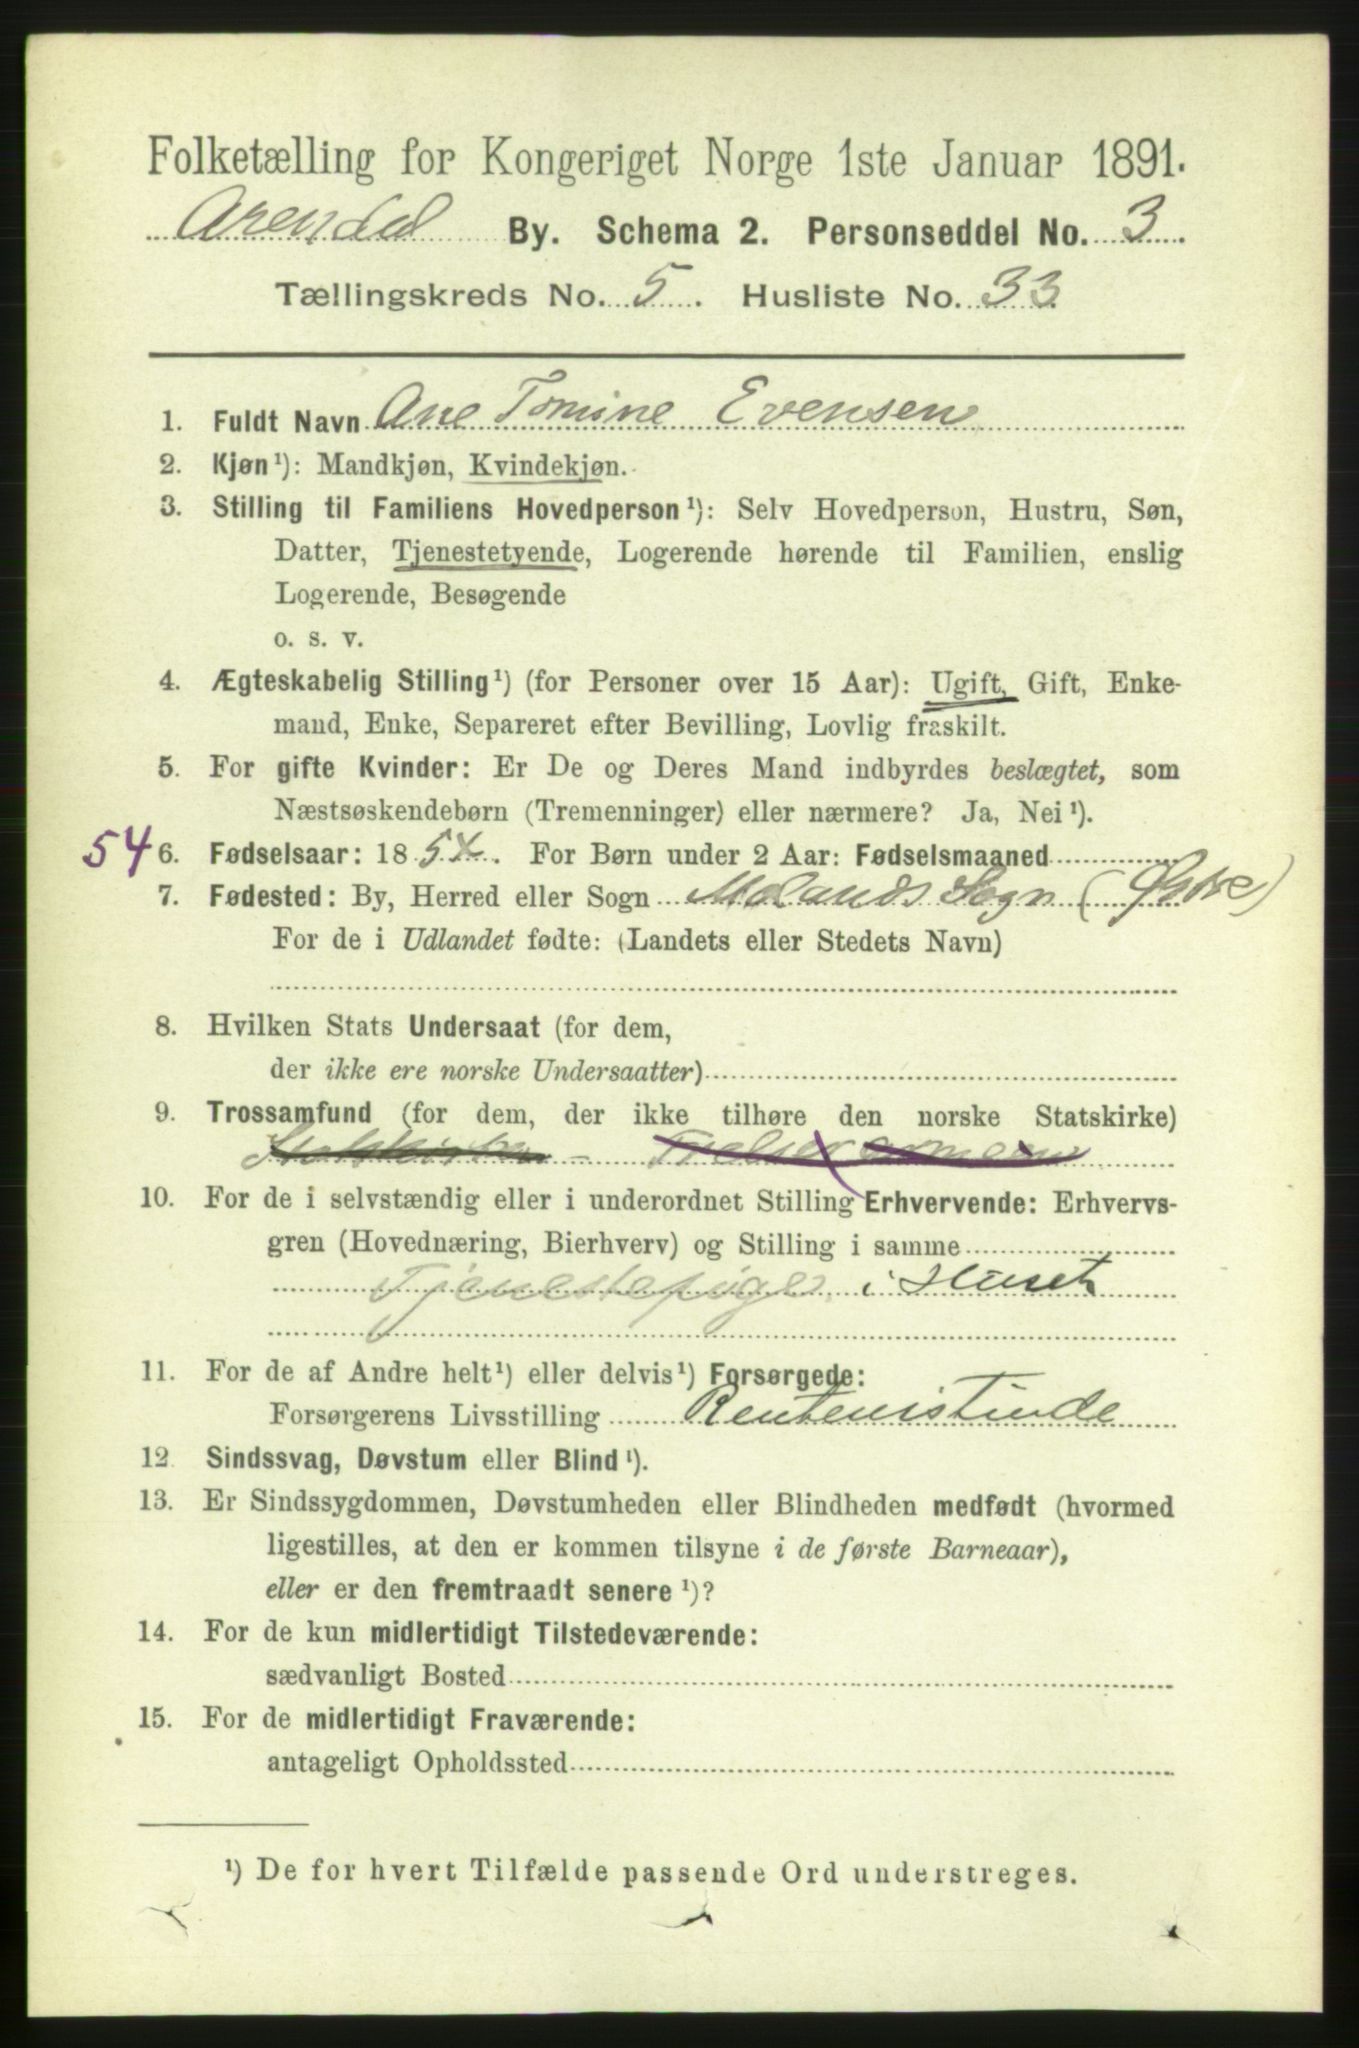 Folketælling for Kongeriget Norge 1ste Januar 1891.
Arendal By. Schema 2. Personseddel No. 3
Tællingskreds No. 5. Husliste No. 33
1. Fuldt Navn Ane Tomine Evensen
2. Kjøn¹): Mandkjøn, Kvindekjøn.
3. Stilling til Familiens Hovedperson¹): Selv Hovedperson, Hustru, Søn,
Datter, Tjenestetyende, Logerende hørende til Familien, enslig
Logerende, Besøgende
o. s. v.
4. Ægteskabelig Stilling¹) (for Personer over 15 Aar): Ugift, Gift, Enke-
mand, Enke, Separeret efter Bevilling, Lovlig fraskilt.
5. For gifte Kvinder: Er De og Deres Mand indbyrdes beslægtet, som
Næstsøskendebørn (Tremenninger) eller nærmere? Ja, Nei¹).
54 6. Fødselsaar: 1854. For Børn under 2 Aar: Fødselsmaaned
7. Fødested: By, Herred eller Sogn Molands Sogn (Østre)
For de i Udlandet fødte: (Landets eller Stedets Navn)
8. Hvilken Stats Undersaat (for dem,
der ikke ere norske Undersaatter)
9. Trossamfund (for dem, der ikke tilhøre den norske Statskirke)
Statskirken - Frelserarmeen
10. For de i selvstændig eller i underordnet Stilling Erhvervende: Erhvervs-
gren (Hovednæring, Bierhverv) og Stilling i samme
Tjenestepige i Huset
11. For de af Andre helt¹) eller delvis¹) Forsørgede:
Forsørgerens Livsstilling Rentenistinde
12. Sindssvag, Døvstum eller Blind¹).
13. Er Sindssygdommen, Døvstumheden eller Blindheden medfødt (hvormed
ligestilles, at den er kommen tilsyne i de første Barneaar),
eller er den fremtraadt senere¹)?
14. For de kun midlertidigt Tilstedeværende:
sædvanligt Bosted
15. For de midlertidigt Fraværende:
antageligt Opholdssted
¹) De for hvert Tilfælde passende Ord understreges.